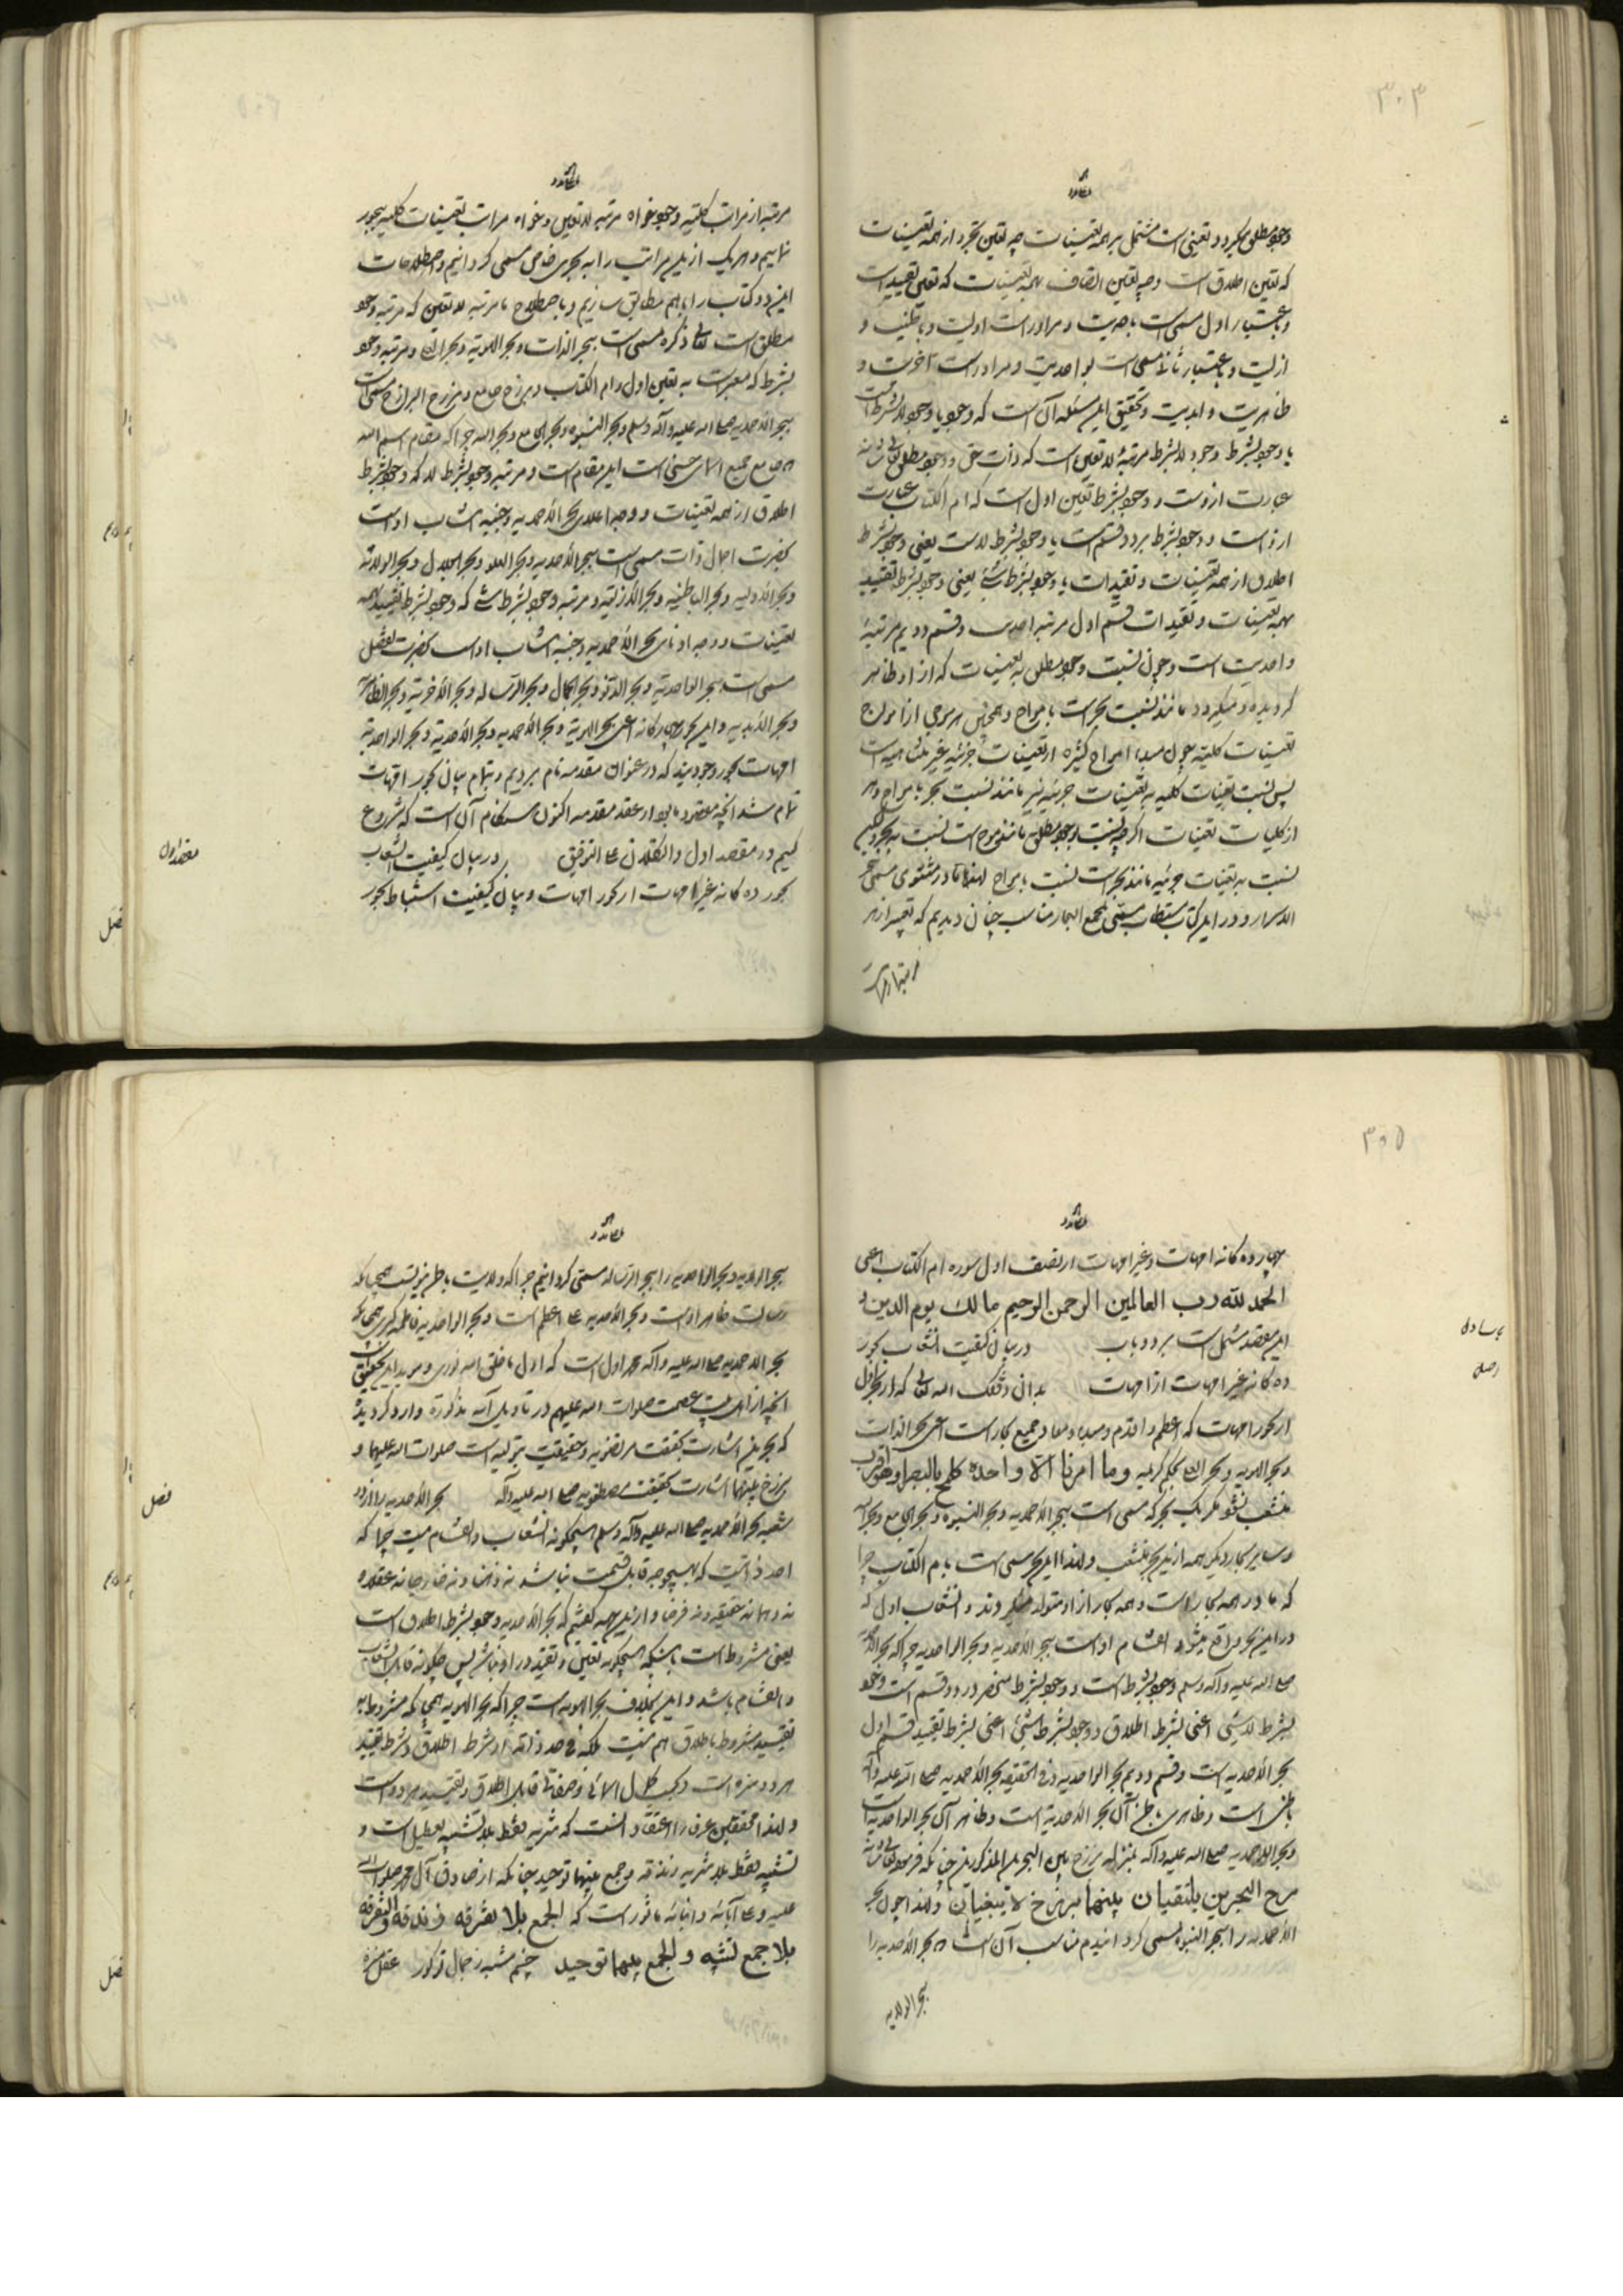 ۳۰۳
وجود مطلق میگردد و تعینی است مشتمل بر همه تعینات چه تعین تجرد از همه تعینات
که تعین اطلاق است و چه تعین اتصاف بهمه تعینات که تعین تقیید است
و باعتبار اول مسمی است باحدیت و مراد راست اولیت و باطنیت و
ازلیت و باعتبار ثانی مسمی است بواحدیت و مراد راست آخریت و
ظاهریت و ابدیت و تحقیق این مسئله آن است که وجود یا وجود لا بشرط است
یا وجود بشرط وجود لا بشرط مرتبهٔ لا تعین است که ذات حق و وجود مطلق تعالی شانه
عبارت ازوست و وجود بشرط تعین اول است که ام الکتاب عبارت
ازو است و وجود بشرط بر دو قسم است یا وجود بشرط لا ست یعنی وجود بشرط
اطلاق از همه تعینات و تقیدات یا وجود بشرط شئ یعنی وجود بشرط تقیید
بهمه تعینات و تقیدات قسم اول مرتبه احدیت و قسم دویم مرتبهٔ
واحدیت است و چون نسبت وجود مطلق به تعینات که از او ظاهر
گردیده و میگردد مانند نسبت بحر است بامواج و همچنین هر موجی از امواج
تعینات کلیه چون مبداء امواج کثیره از تعینات جزئیه غیر متناهیه است
پس نسبت تعینات کلیه به تعینات جزئیه نیز مانند نسبت بحر بامواج و هر
از کلیات تعینات اگرچه نسبت بوجود مطلق مانند موج است نسبت به بحر ولیکن
نسبت به تعینات جزئیه مانند بحر است نسبت بامواج لهذا ما در مثنوی مسمی ببحر
الاسرار و در این کتاب مستطاب مسمی بمجمع البحار مناسب چنان دیدیم که تعبیر از هر
مرتبه از مراتب کلیه وجود خواه مرتبه لا تعین و خواه مراتب تعینات کلیه ببحور
نماییم و هر یک از این مراتب را به بحری خاص مسمی گردانیم و اصطلاحات
این دو کتاب را با هم مطابق سازیم و باصطلاح ما مرتبه لا تعین که مرتبه وجود
مطلق است تعالی ذکره مسمی است ببحر الذات و بحر الهویة و بحر الله و مرتبه وجود
بشرط که معبر است به تعین اول و ام الکتاب و برزخ جامع و برزخ البرازخ مسمی است
ببحر الاحمدیه صلی الله علیه و آله وسلم و بحر النبوة و بحر الجامع و بحر الله چرا که مقام اسم الله
که جامع جمیع اسمای حسنی است این مقام است و مرتبه وجود بشرط لا که وجود بشرط
اطلاق از همه تعینات و وجه اعلای بحر الاحمدیه و جنبه انتساب او است
بحضرت اجمال ذات مسمی است ببحر الاحدیه و بحر العلو و بحر الجلال و بحر الولایة
و بحر الاولیه و بحر الباطنیه و بحر الازلیه و مرتبه وجود بشرط شئ که وجود بشرط تقیید بهمه
تعینات و وجه ادنای بحر الاحمدیه و جنبه انتساب او است بحضرت تفصیل
مسمی است ببحر الواحدیه و بحر الدنو و بحر الجمال و بحر الرساله و بحر الآخریه و بحر الظاهریه
و بحر الابدیه و این بحور چهارگانه اعنی بحر الهویة و بحر الاحمدیه و بحر الاحدیة و بحر الواحدیة
امهات بحور وجودیند که در عنوان مقدمه نام بردیم و بتمام بیان بحور امهات
تمام شد انچه مقصود ما بود از عقد مقدمه اکنون هنگام آن است که شروع
کنیم در مقصد اول و التکلان علی التوفیق در بیان کیفیت انشعاب
بحور ده کانه غیر امهات از بحور امهات و بیان کیفیت استنباط بحور
مقصد اول
۳۰۵
چهارده کانه امهات و غیر امهات از نصف اول سوره ام الکتاب اعنی
الحمد لله رب العالمین الرحمن الرحیم مالك یوم الدین و
این مقصد مشتمل است بر دو باب در بیان کیفیت انشعاب بحور
ده کانه غیر امهات از امهات بدان وفقک الله تعالی که از بحر اول
از بحور امهات که اعظم و اقدم و مبداء و معاد جمیع بحار است اعنی بحر الذات
و بحر الهویه و بحر الله بحکم کریمه وما امرنا الا واحدة کلمح بالبصر او هو اقرب
منشعب نشود مگر یک بحر که مسمی است ببحر الاحمدیه و بحر النبوة و بحر الجامع و بحر الله
و سایر بحار دیگر همه از این بحر منشعب و لهذا این بحر مسمی است بام الکتاب چرا
که مادر همه بحار است و همه بحار از او متولد میگردند و انشعاب اول که
در این بحر واقع میشود انقسام او است ببحر الاحدیه و بحر الواحدیه چرا که بحر الاحمدیه
صلی الله علیه و آله وسلم وجود بشرط است و وجود بشرط منحصر در دو قسم است وجود
بشرط لا شئ اعنی بشرط اطلاق و وجود بشرط شئ اعنی بشرط تقیید قسم اول
بحر الاحدیه است و قسم دویم بحر الواحدیه و فی الحقیقه بحر الاحمدیه صلی الله علیه و آله
باطنی است و ظاهری باطن آن بحر الاحدیة است و ظاهر آن بحر الواحدیه است
و بحر الاحمدیه صلی الله علیه و آله بمنزله برزخ بین البحرین المذکورین چنانکه فرمود تعالی شانه
مرج البحرین یلتقیان بینهما برزخ لا یبغیان و لهذا چون بحر
الاحمدیه را ببحر النبوة مسمی گردانیدیم مناسب آن است که بحر الاحدیه را
بحر الولایه
ببحر الولایه و بحر الواحدیه را ببحر الرساله مسمی گردانیم چرا که ولایت باطن نبوتست همچنانکه
رسالت ظاهر اوست و بحر الاحدیه علی اعظم است و بحر الواحدیه فاطمه کبری همچنانکه
بحر الاحمدیه صلی الله علیه و آله محمد اول است که اول ما خلق الله نوری و موید این تحقیق است
انچه از اهل بیت عصمت صلوات الله علیهم در تاویل آیه مذکوره وارد گردیده
که بحرین اشارت بحقیقت مرتضویه و حقیقت بتولیه است صلوات الله علیهما و
برزخ بینهما اشارت بحقیقت مصطفویه صلی الله علیه و آله بحر الاحدیه را از دو
شعبه بحر الاحمدیه صلی الله علیه و آله وسلم هیچگونه انشعاب و انقسام نیست چرا که
احد ذاتیست که بهیچوجه قابل قسمت نباشد نه ذهنا و نه خارجا نه عقلا
نه وهما نه حقیقة و نه فرضا و از این جهه گفتیم که بحر الاحدیه وجود بشرط اطلاق است
یعنی مشروط است باینکه هیچگونه تعین و تقید در او نباشد پس چگونه قابل انشعاب
و انقسام باشد و این بخلاف بحر الهویه است چرا که بحر الهویه همچنانکه مشروط به
تقیید مشروط باطلاق هم نیست بلکه فی حد ذاته از شرط اطلاق و شرط تقیید
هر دو منزه است و بحسب کمال اسمائی و صفاتی قابل اطلاق و تقیید هر دو است
و لهذا محققین عرفا را اعتقاد انست که تنزیه فقط بلا تشبیه تعطیل است و
تشبیه فقط بلا تنزیه زندقه و جمع بینهما توحید چنانکه از صادق آل محمد صلوات الله
علیه و علی آبائه و ابنائه ماثور است که الجمع بلا تفرقه زندقه و التفرقه
بلا جمع تشبیه و الجمع بینهما توحید چشم مشبه ز جمال تو کور عقل منزه
فصل